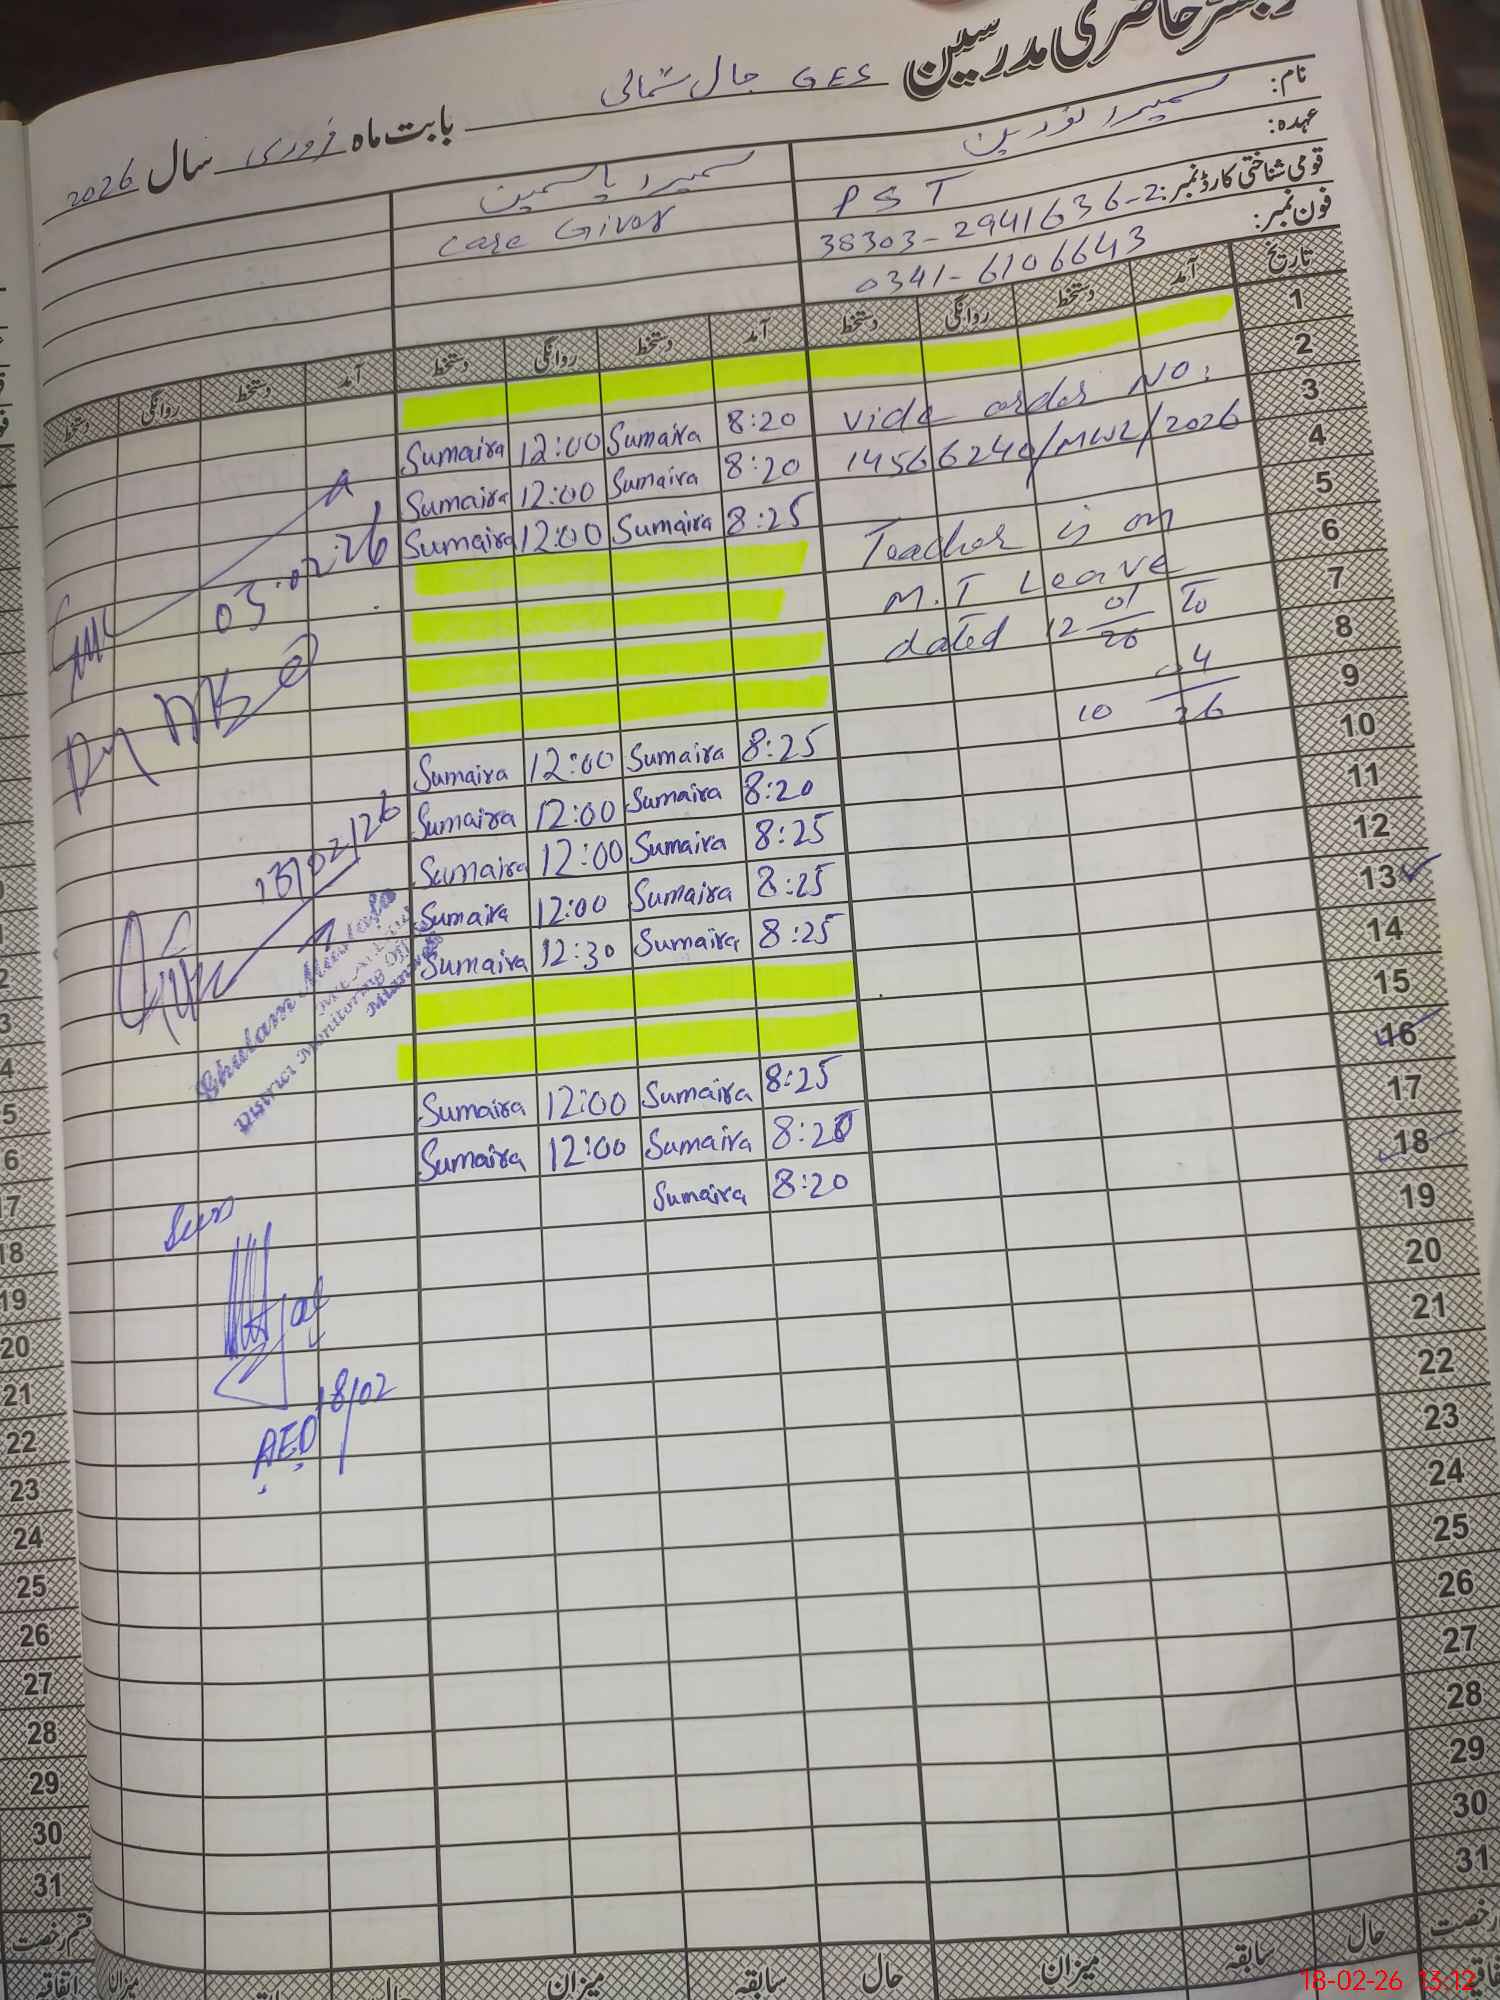 رجسٹر حاضری مدرسین GES جال شمالی بابت ماہ فروری سال 2026
نام: سمیرا نورین
سمیرا یاسمین
عہدہ: PST
Care Giver
قومی شناختی کارڈ نمبر: 38303-2941636-2
فون نمبر: 0341-6106643
تاریخ آمد دستخط روانگی دستخط آمد دستخط روانگی دستخط آمد دستخط روانگی دستخط
1
2 Vide order No. 8:20 Sumaira 12:00 Sumaira
3 14566240/MWL/2026 8:20 Sumaira 12:00 Sumaira
4 8:25 Sumaira 12:00 Sumaira
5 Teacher is on
6 M.T Leave
7 dated 12 01/26 To
8 10 04/26
9 8:25 Sumaira 12:00 Sumaira
10 8:20 Sumaira 12:00 Sumaira
11 8:25 Sumaira 12:00 Sumaira
12 8:25 Sumaira 12:00 Sumaira
13 8:25 Sumaira 12:30 Sumaira
14
15
16 8:25 Sumaira 12:00 Sumaira
17 Sumaira 12:00 Sumaira
18 8:20 Sumaira
19
20
21
22
23
24
25
26
27
28
29
30
31
03.02.26
13/02/26
Ghulam Mustafa
District Monitoring Officer
Mianwali
AEO 18/02
رخصت حال سابقہ میزان حال سابقہ میزان
قسم رخصت
اتفاقیہ
میزان
5
6
17
18
19
20
21
22
23
24
25
26
27
28
29
30
31
18-02-26 13:12